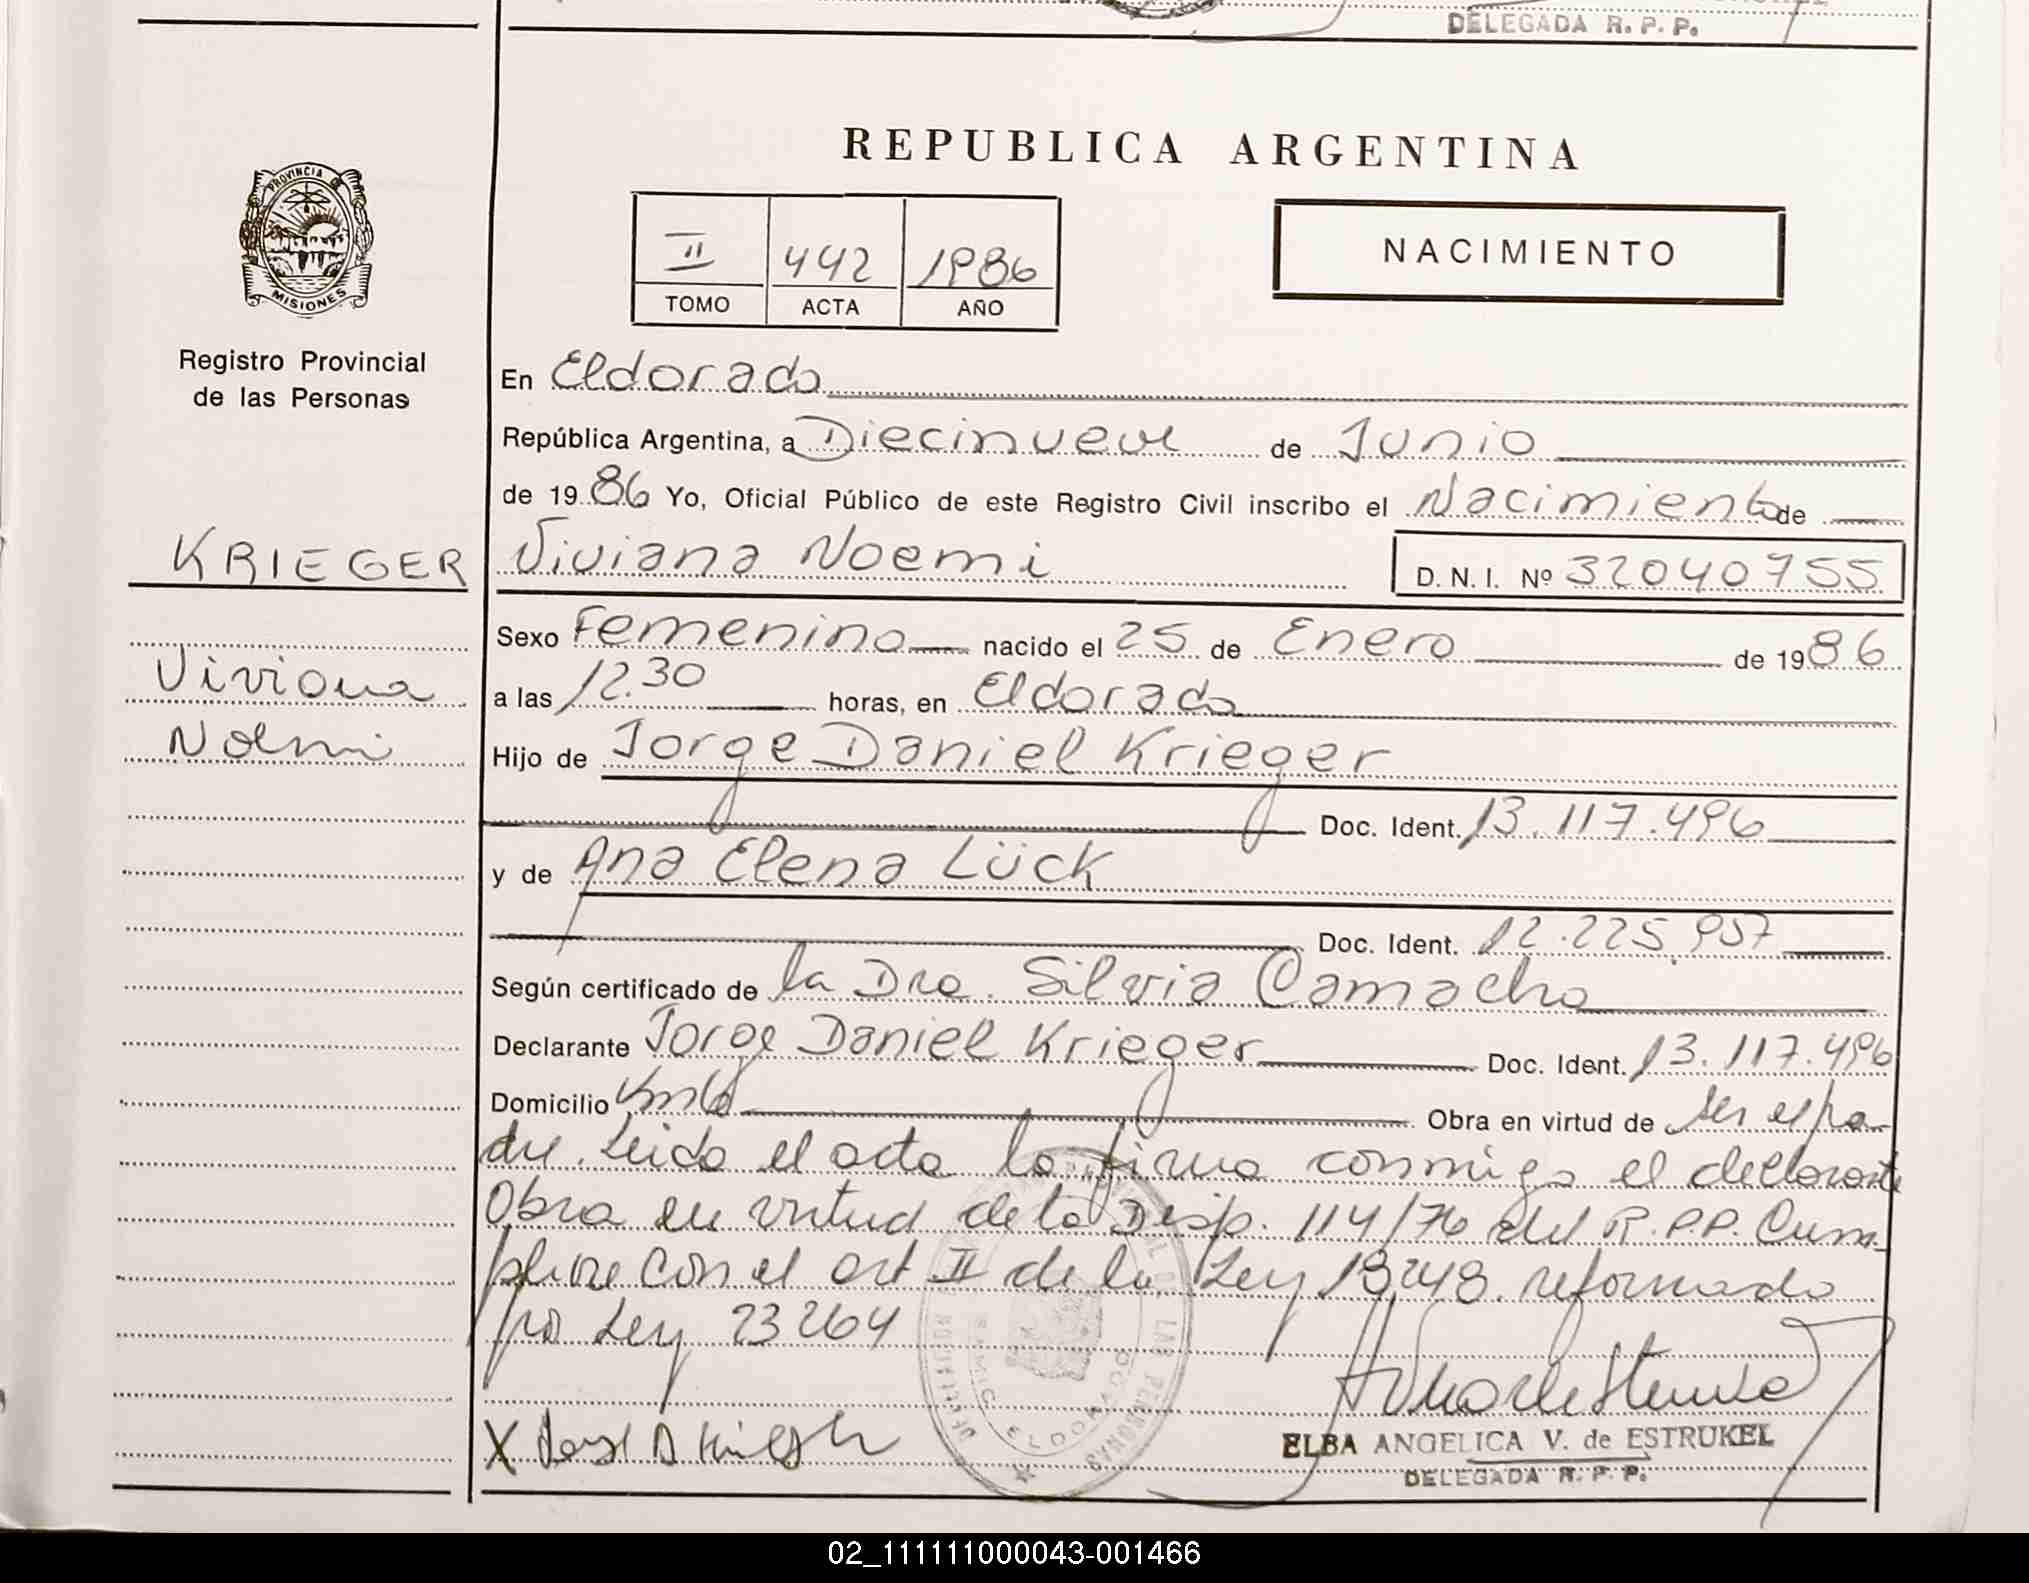 DELEGADA R. P. P.
REPUBLICA ARGENTINA
PROVINCIA DE
MISIONES
II 442 1986
TOMO ACTA AÑO
NACIMIENTO
Registro Provincial
de las Personas
En Eldorado
República Argentina, a Diecinueve de Junio
de 1986 Yo, Oficial Público de este Registro Civil inscribo el Nacimiento de
KRIEGER
Viviana Noemi D. N. I. Nº 32040755
Sexo Femenino nacido el 25 de Enero de 1986
Viviana
a las 12.30 horas, en Eldorado
Noemi
Hijo de Jorge Daniel Krieger
Doc. Ident. 13.117.496
y de Ana Elena Lück
Doc. Ident. 12.225.957
Según certificado de la Dra. Silvia Camacho
Declarante Jorge Daniel Krieger Doc. Ident. 13.117.496
Domicilio Obra en virtud de ser el pa-
dre. Leida el acta la firma conmigo el declarante
Obra en virtud de la Disp. 114/76 del R.P.P. Cum-
plióse con el art II de la Ley 18248. reformado
por Ley 23264
X
ELBA ANGELICA V. de ESTRUKEL
DELEGADA R. P. P.
LAS PERSONAS
ELDORADO
02_111111000043-001466